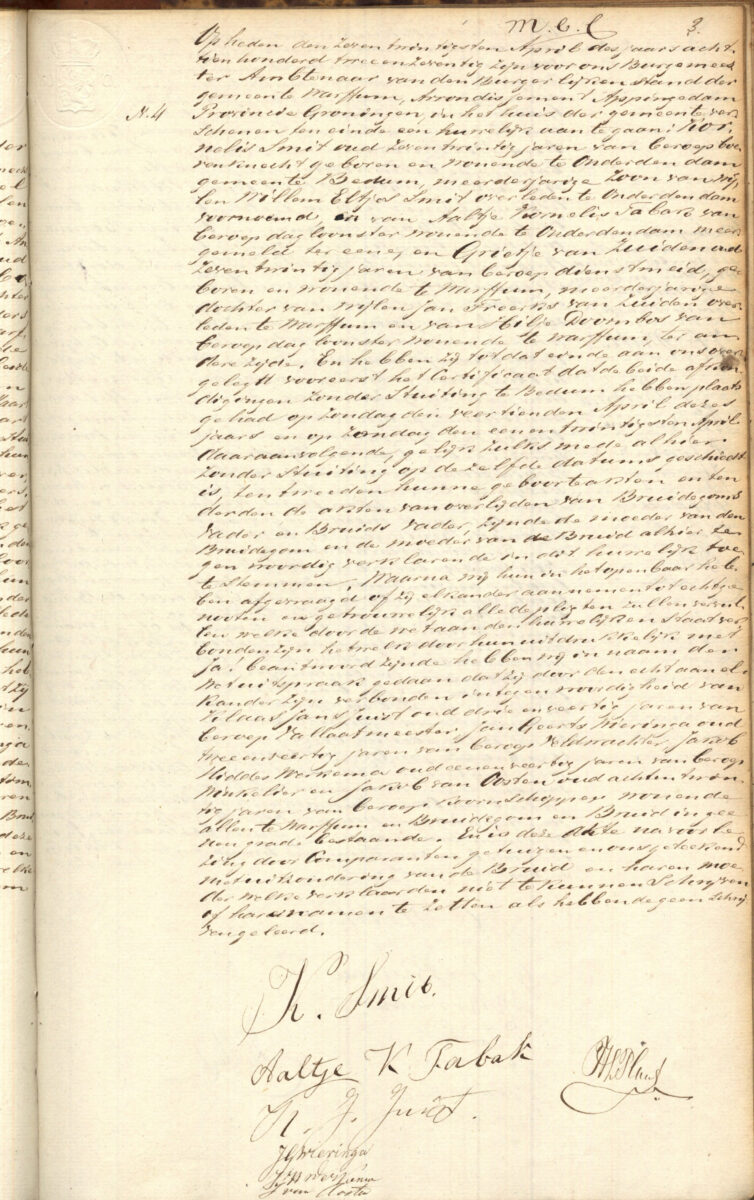 M. C. C. 3.
Op heden den Zeven twintigsten April des jaars acht
tien honderd twee en zeventig zijn voor ons Burgemees
ter Ambtenaar van den Burgerlijken Stand der
gemeente Warffum, Arrondissement Appingedam
N. 4 Provincie Groningen, in het huis der gemeente ver
schenen ten einde een huwelijk aan te gaan: Kor
nelis Smit oud Zeven twintig jaren van beroep boe
renknecht geboren en wonende te Onderdendam
gemeente Bedum, meerderjarige zoon van wij
len Willem Eltjes Smit overleden te Onderdendam
voornoemd, en van Aaltje Kornelis Tabak van
beroep dagloonster wonende te Onderdendam meer
gemeld ter eene, en Grietje van Zuiden oud
Zeven twintig jaren van beroep dienstmeid, ge
boren en wonende te Warffum, meerderjarige
dochter van wijlen Jan Freerks van Zuiden over
leden te Warffum en van Hilje Doornbos van
beroep dagloonster wonende te Warffum, ter an
dere zijde. En hebben zij tot dat einde aan ons over
gelegd vooreerst het Certificaat dat de beide afkon
digingen zonder Stuiting te Bedum hebben plaats
gehad op Zondag den veertienden April dezes
jaars en op Zondag den eenentwintigsten April
daaraanvolgende, gelijk zulks mede alhier
zonder Stuiting op de zelfde datums geschiedt
is, ten tweeden hunne geboorteakten en ten
derden de akten van overlijden van Bruidegoms
vader en Bruids vader, zijnde de moeder van den
Bruidegom en de moeder van de Bruid alhier te
gen woordig verklarende in dit huwelijk toe
te Stemmen, Waarna wij hun in het openbaar heb
ben afgevraagd of zij elkander aannemen tot echtge
nooten en getrouwelijk alle de pligten zullen vervul
len welke door de wet aan den huwelijken Staat ver
bonden zijn hetwelk door hun uitdrukkelijk met
Ja! beantwoord zijnde hebben wij in naam der
Wet uitspraak gedaan dat zij door den echt aan el
kander zijn verbonden in tegenwoordigheid van
Klaas Jans Juist oud drie en veertig jaren van
beroep Vallaatmeester, Jan Geerts Wieringa oud
twee en veertig jaren van beroep Veldwachter, Jakob
Hiddes Werkema oud eenen veertig jaren van beroep
Winkelier en Jakob van Oosten oud acht en twin
tig jaren van beroep Koornschipper wonende
allen te Warffum en Bruidegom en Bruid in gee
nen graad bestaande. En is deze Akte na voorle
zing door Comparanten getuigen en ons geteekend
met uitzondering van de Bruid en haren moe
der welke verklaarden niet te kunnen Schrijven
of hare namen te zetten als hebbende geen Schrij
ven geleerd.
K. Smit.
Aaltje K Tabak
K. J. Juist.
JGWieringa
J van Oosten